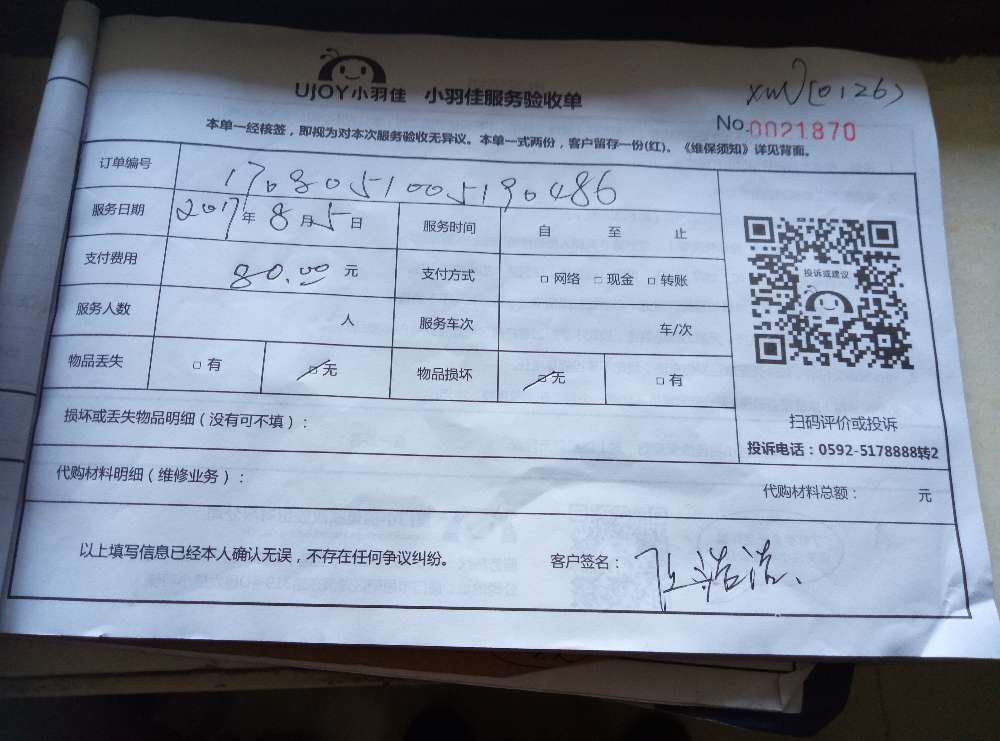 UJOY小羽佳 小羽佳服务验收单
No.0021870
本单一经核签，即视为对本次服务验收无异议。本单一式两份，客户留存一份(红)。《维保须知》详见背面。
订单编号 1708051005190486
服务日期 2017年8月5日 服务时间 自 至 止
支付费用 80.00元 支付方式 □网络 □现金 □转账
服务人数 人 服务车次 车/次
物品丢失 □有 □无 物品损坏 □无 □有
投诉或建议
扫码评价或投诉
投诉电话：0592-5178888转2
损坏或丢失物品明细（没有可不填）：
代购材料明细（维修业务）： 代购材料总额： 元
以上填写信息已经本人确认无误，不存在任何争议纠纷。 客户签名：